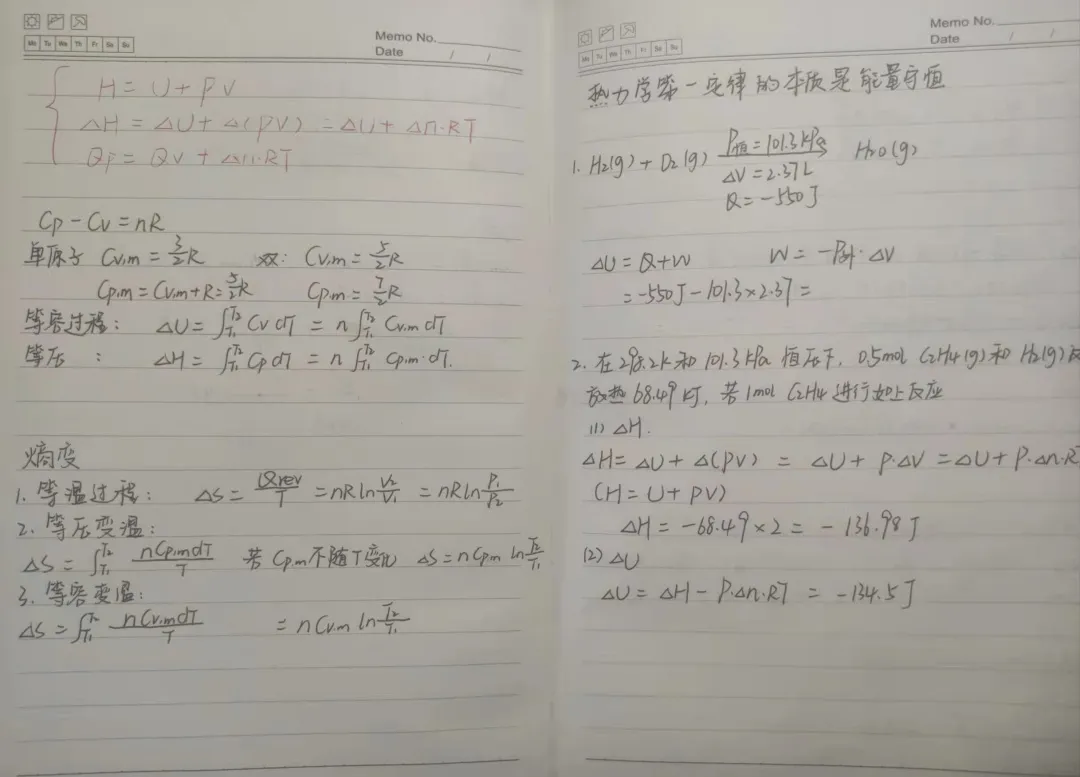 Memo No.
Mo Tu We Th Fr Sa Su
Date / /
H = U + PV
ΔH = ΔU + Δ(PV) = ΔU + Δn·RT
Qp = Qv + Δn·RT
Cp - Cv = nR
单原子 Cv,m = 3/2 R 双: Cv,m = 5/2 R
Cp,m = Cv,m + R = 5/2 R Cp,m = 7/2 R
等容过程: ΔU = ∫T1T2 Cv dT = n∫T1T2 Cv,m dT
等压 : ΔH = ∫T1T2 Cp dT = n∫T1T2 Cp,m·dT.
熵变
1. 等温过程: ΔS = Qrev/T = nR ln V2/V1 = nR ln P1/P2
2. 等压变温:
ΔS = ∫T1T2 nCp,m dT/T 若 Cp,m 不随T变化 ΔS = nCp,m ln T2/T1
3. 等容变温:
ΔS = ∫T1T2 nCv,m dT/T = nCv,m ln T2/T1
Memo No.
Mo Tu We Th Fr Sa Su
Date / /
热力学第一定律的本质是能量守恒
1. H2(g) + O2(g) P恒=101.3kPa H2O(g)
ΔV = 2.37L
Q = -550J
ΔU = Q+W W = -P外·ΔV
= -550J - 101.3×2.37 =
2. 在298.2K和101.3kPa恒压下, 0.5mol C2H4(g)和H2(g)反
放热68.49kJ, 若1mol C2H4进行如上反应
(1) ΔH.
ΔH = ΔU + Δ(PV) = ΔU + P·ΔV = ΔU + P·Δn·R
(H = U + PV)
ΔH = -68.49 × 2 = -136.98J
(2) ΔU
ΔU = ΔH - P·Δn·RT = -134.5J